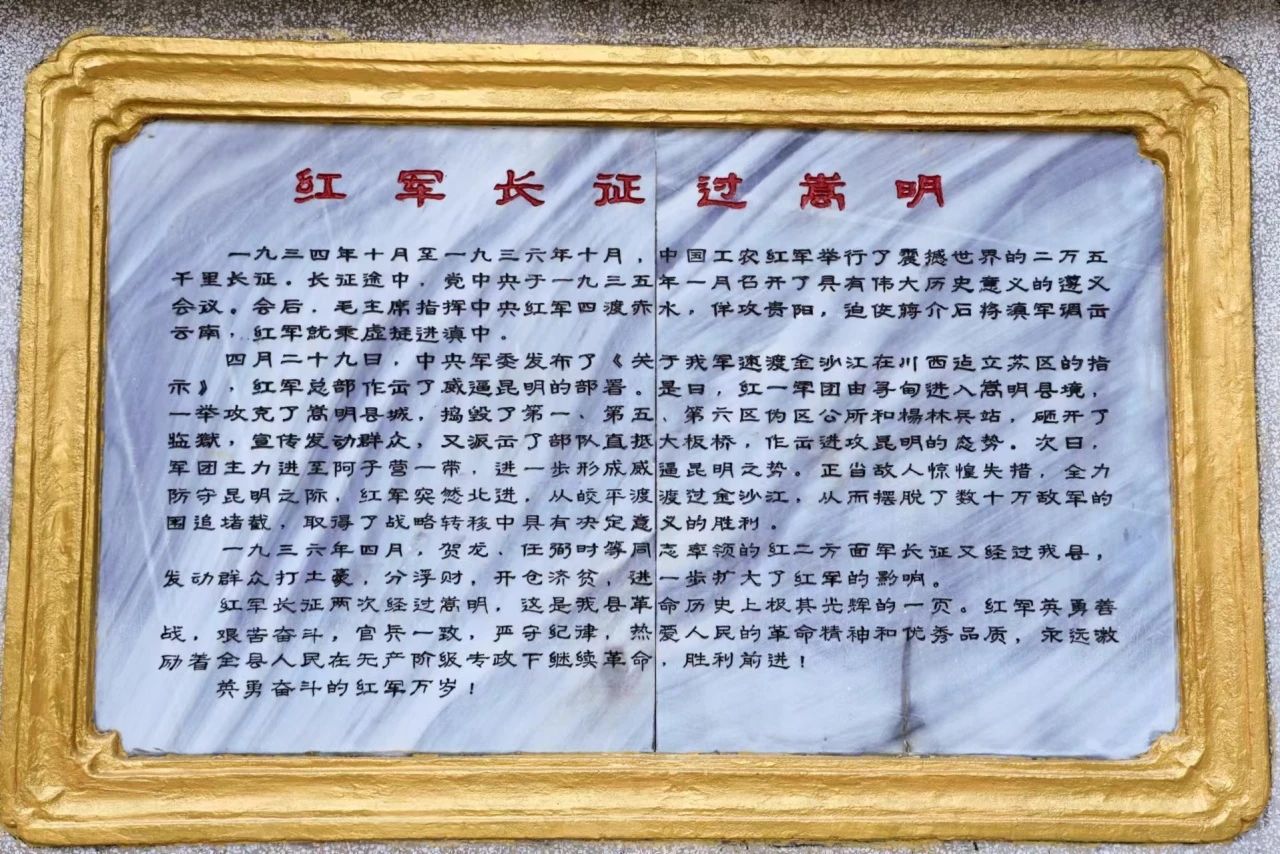 红军长征过嵩明
一九三四年十月至一九三六年十月，中国工农红军举行了震撼世界的二万五
千里长征。长征途中，党中央于一九三五年一月召开了具有伟大历史意义的遵义
会议。会后，毛主席指挥中央红军四渡赤水，佯攻贵阳，迫使蒋介石将滇军调出
云南，红军就乘虚挺进滇中。
四月二十九日，中央军委发布了《关于我军速渡金沙江在川西边立苏区的指
示》，红军总部作出了威逼昆明的部署。是日，红一军团由寻甸进入嵩明县境，
一举攻克了嵩明县城，捣毁了第一、第五、第六区伪区公所和楊林兵站，砸开了
监獄，宣传发动群众，又派出了部队直抵大板桥，作出进攻昆明的态势。次日，
军团主力进至阿子营一带，进一步形成威逼昆明之势。正当敌人惊惶失措，全力
防守昆明之际，红军突然北进，从皎平渡渡过金沙江，从而摆脱了数十万敌军的
围追堵截，取得了战略转移中具有决定意义的胜利。
一九三六年四月，贺龙、任弼时等同志率领的红二方面军长征又经过我县，
发动群众打土豪，分浮财，开仓济贫，进一步扩大了红军的影响。
红军长征两次经过嵩明，这是我县革命历史上极其光辉的一页。红军英勇善
战，艰苦奋斗，官兵一致，严守纪律，热爱人民的革命精神和优秀品质，永远激
励着全县人民在无产阶级专政下继续革命，胜利前进！
英勇奋斗的红军万岁！